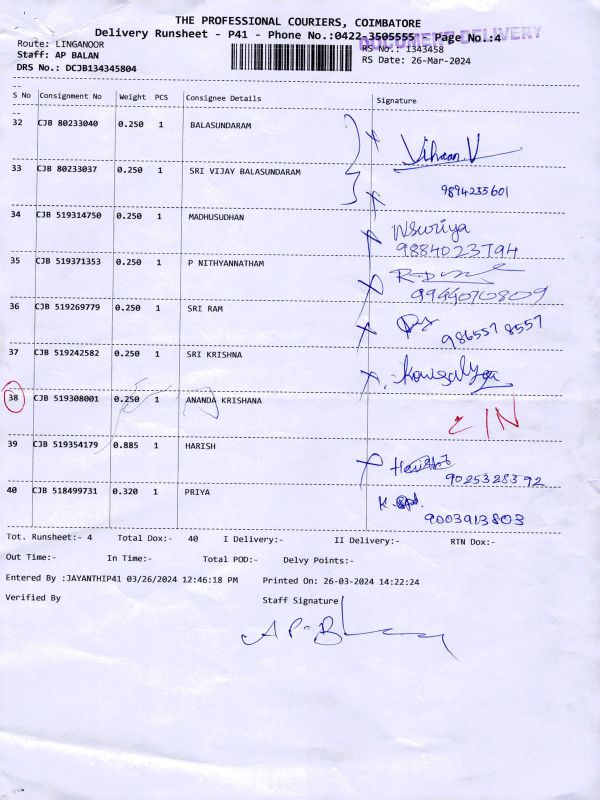 THE PROFESSIONAL COURIERS, COIMBATORE
Delivery Runsheet - P41 - Phone No.:0422-3505555 Page No.:4
DOCUMENT DELIVERY
Route: LINGANOOR
RS No.: 1343458
Staff: AP BALAN
RS Date: 26-Mar-2024
DRS No.: DCJB134345804
S No Consignment No Weight PCS Consignee Details Signature
32 CJB 80233040 0.250 1 BALASUNDARAM
33 CJB 80233037 0.250 1 SRI VIJAY BALASUNDARAM
9894235601
34 CJB 519314750 0.250 1 MADHUSUDHAN
N.Suriya
9884023794
35 CJB 519371353 0.250 1 P NITHYANNATHAM
9944070809
36 CJB 519269779 0.250 1 SRI RAM
986557 8557
37 CJB 519242582 0.250 1 SRI KRISHNA
Kowsalyaa
38 CJB 519308001 0.250 1 ANANDA KRISHANA
39 CJB 519354179 0.885 1 HARISH
9025328392
40 CJB 518499731 0.320 1 PRIYA
9003913803
Tot. Runsheet:- 4 Total Dox:- 40 I Delivery:- II Delivery:- RTN Dox:-
Out Time:- In Time:- Total POD:- Delvy Points:-
Entered By :JAYANTHIP41 03/26/2024 12:46:18 PM Printed On: 26-03-2024 14:22:24
Verified By Staff Signature